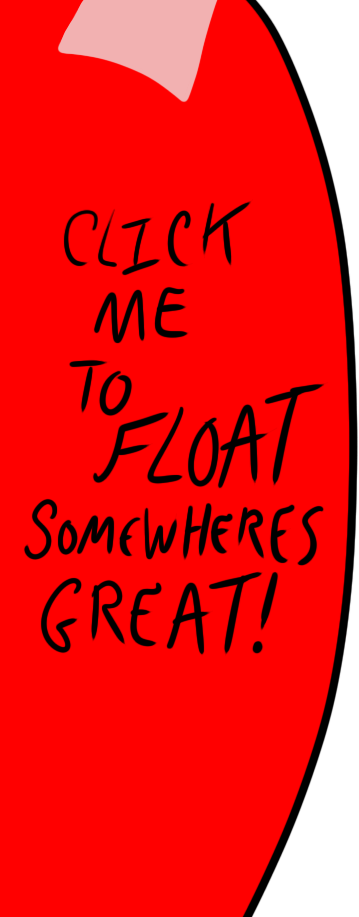 CLICK
ME
TO
FLOAT
SOMEWHERES
GREAT!